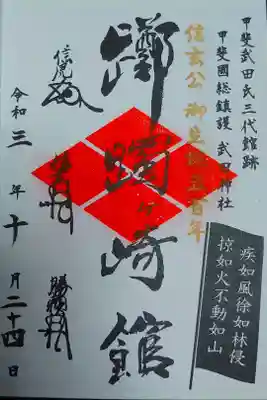 甲斐武田氏三代館跡
甲斐國総鎮護 武田神社
信玄公 御生誕五百年
疾如風徐如林侵
掠如火不動如山
躑躅ヶ崎館
信虎
令和三年十月二十四日